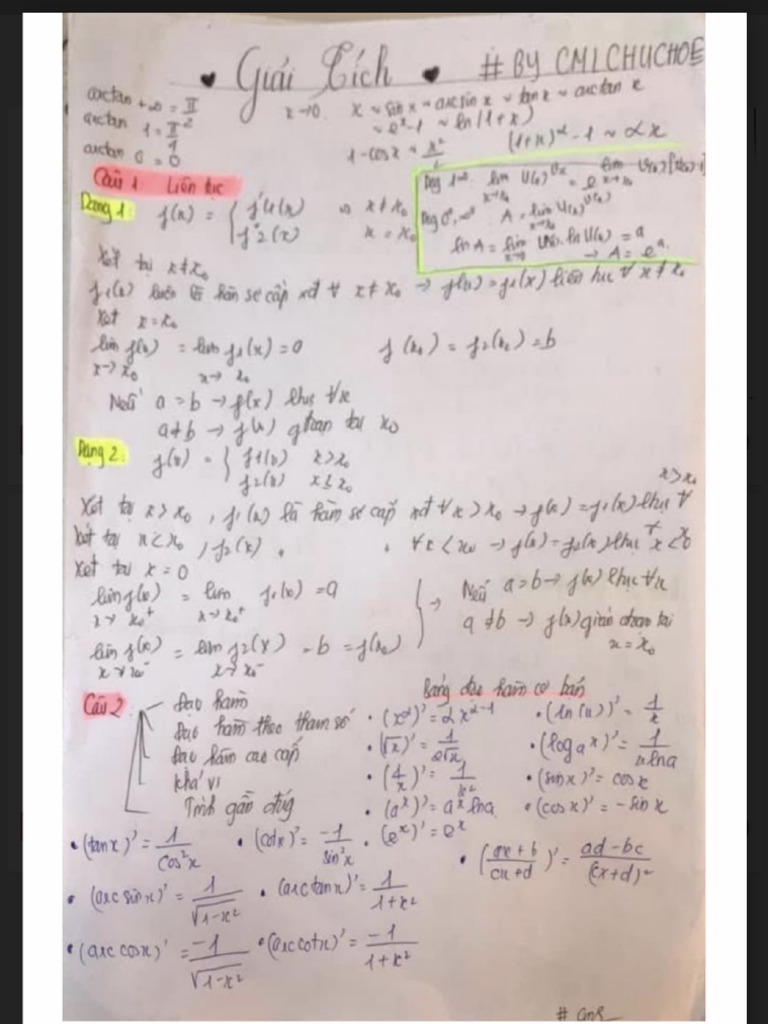 Giải Tích # BY CMLCHUCHOE
arctan +∞ = π/2
arctan 1 = π/4
arctan 0 = 0
x→0 x ~ sin x ~ arcsin x ~ tan x ~ arctan x
~ eˣ-1 ~ ln(1+x)
1-cosx ~ x²/
(1+x)^α - 1 ~ αx
Câu 1 Liên tục
Dạng 1^∞ lim U(x)^Vx = e^ lim
x→x₀
Dạng 0⁰, ∞⁰ A = lim U(x)^V(x)
x→x₀
ln A = lim V(x).ln U(x) = a
→ A = eᵃ
Dạng 1: f(x) = { f1(x) x ≠ x₀
f2(x) x = x₀
Xét tại x≠x₀
f1(x) là hàm sơ cấp xđ ∀ x ≠ x₀ → f(x) = f1(x) liên tục ∀ x ≠ x₀
Xét x = x₀
lim f(x) = lim f1(x) = a f(x₀) = f2(x₀) = b
x→x₀ x→x₀
Nếu a = b → f(x) ltục ∀x
a≠b → f(x) gđoạn tại x₀
Dạng 2: f(x) = { f1(x) x>x₀
f2(x) x≤x₀
Xét tại x>x₀, f1(x) là hàm sơ cấp xđ ∀x>x₀ → f(x)=f1(x) ltục ∀ x>x₀
Xét tại x<x₀, f2(x) ∀x<x₀ → f(x)=f2(x) ltục ∀ x<x₀
Xét tại x = 0
lim f(x) = lim f1(x) = a
x→x₀⁺ x→x₀⁺
lim f(x) = lim f2(x) = b = f(x₀)
x→x₀⁻ x→x₀⁻
→ Nếu a=b → f(x) ltục ∀x
a≠b → f(x) gián đoạn tại
x = x₀
Câu 2
Đạo hàm
Đạo hàm theo tham số
Đạo hàm cao cấp
khả vi
Tính gần đúng
Bảng đạo hàm cơ bản
• (x^α)' = αx^α-1 • (ln(x))' = 1/x
• (√x)' = 1/2√x • (logₐx)' = 1/xlna
• (1/x)' = 1/x² • (sinx)' = cosx
• (aˣ)' = aˣ lna • (cosx)' = -sin x
• (tanx)' = 1/cos²x • (cotx)' = -1/sin²x • (eˣ)' = eˣ
• (ax+b/cx+d)' = ad-bc/(cx+d)²
• (arcsinx)' = 1/√1-x² • (arctanx)' = 1/1+x²
• (arccosx)' = -1/√1-x² • (arccotx)' = -1/1+x²